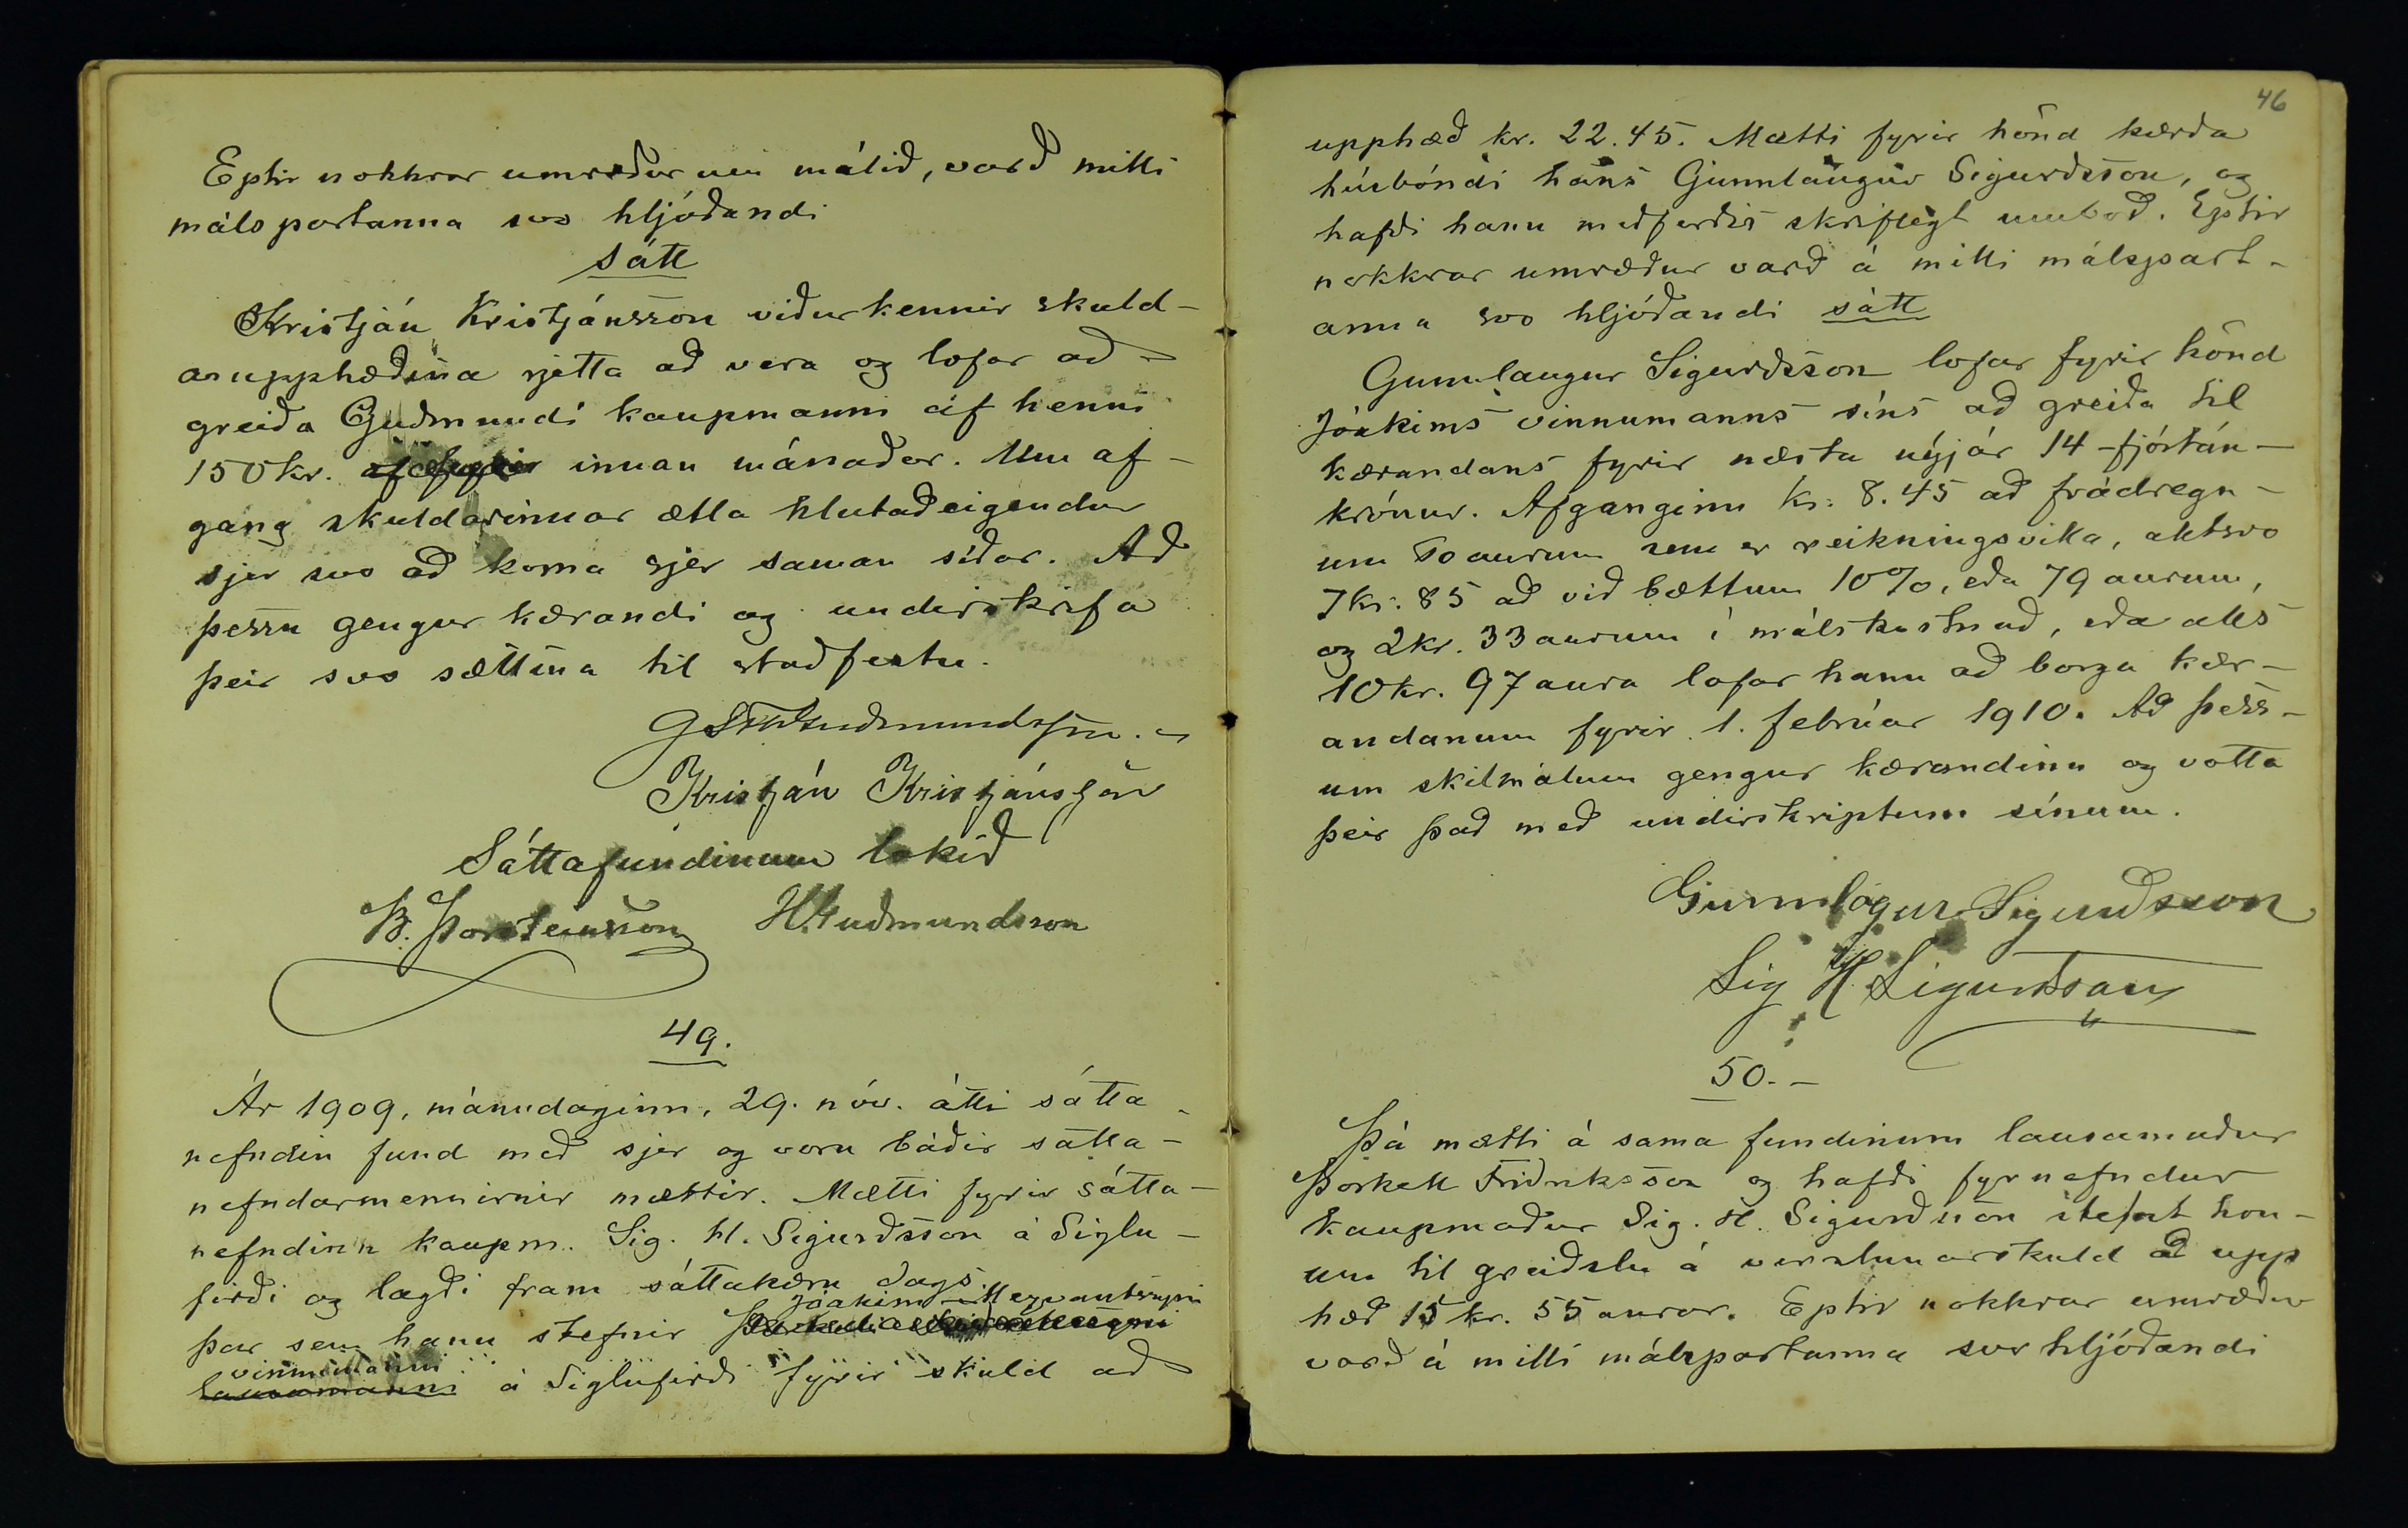 Eptir nokkrar umræður um málið, varð milli
málspartanna svo hljóðandi
sátt
Kristján Kristjánsson viðurkennir skuld-
arupphæðina rjetta að vera og lofar að
greiða Guðmundi kaupmanni af henni
150 kr. innan mánaðar. Um af-
gang skuldarinnar ætla hlutaðeigendur
sjer svo að koma sjer saman síðar. Að
þessu gengur kærandi og undirskrifa
þeir svo sættina til staðfestu.
Guðmundsson.
Kristján Kristjánsson
Sáttafundinum lokið
B. Þorsteinsson HGuðmundsson
49.
Ár 1909, mánudaginn, 29. nóv. átti sátta-
nefndin fund með sjer og voru báðir sátta-
nefndarmennirnir mættir. Mætti fyrir sátta-
nefndinn kaupm. Sig. H. Sigurðsson á Siglu-
firði og lagði fram sáttakæru dags
Jóakim
þar sem hann stefnir
vinnumanni
lausamanni á Siglufirði fyrir skuld að
46
upphæð kr. 22.45. Mætti fyrir hönd kærða
húsbóndi hans Gunnlaugur Sigurðsson, og
hafði hann meðferðis skriflegt umboð. Eptir
nokkrar umræður varð á milli málspart-
anna svo hljóðandi sátt
Gunnlaugur Sigurðsson lofar fyrir hönd
Jóakims vinnumanns síns að greiða til
kærandans fyrir næsta nýjár 14 -fjórtán-
krónur. Afganginn kr. 8.45 að frádregn-
um 60 aurum sem er reikningsvilla, alltsvo
7 kr. 85 að við bættum 10%, eða 79 aurum,
og 2 kr. 33 aurum í málskostnað, eða alls
10 kr. 97 aura lofar hann að borga kær-
andanum fyrir 1. febrúar 1910. Að þess-
um skilmálum gengur kærandinn og votta
þeir það með undirskriptum sínum.
Gunnlögur Sigurðsson
Sig H. Sigurðsson
50.-
Þá mætti á sama fundinum lausamaður
Þorkell Friðriksson og hafði fyrnefndur
kaupmaður Sig. H. Sigurðsson stefnt hon-
um til greiðslu á verzlunarskuld að upp
hæð 15 kr. 55 aurar. Eptir nokkrar umræður
varð á milli málspartanna svo hljóðandi